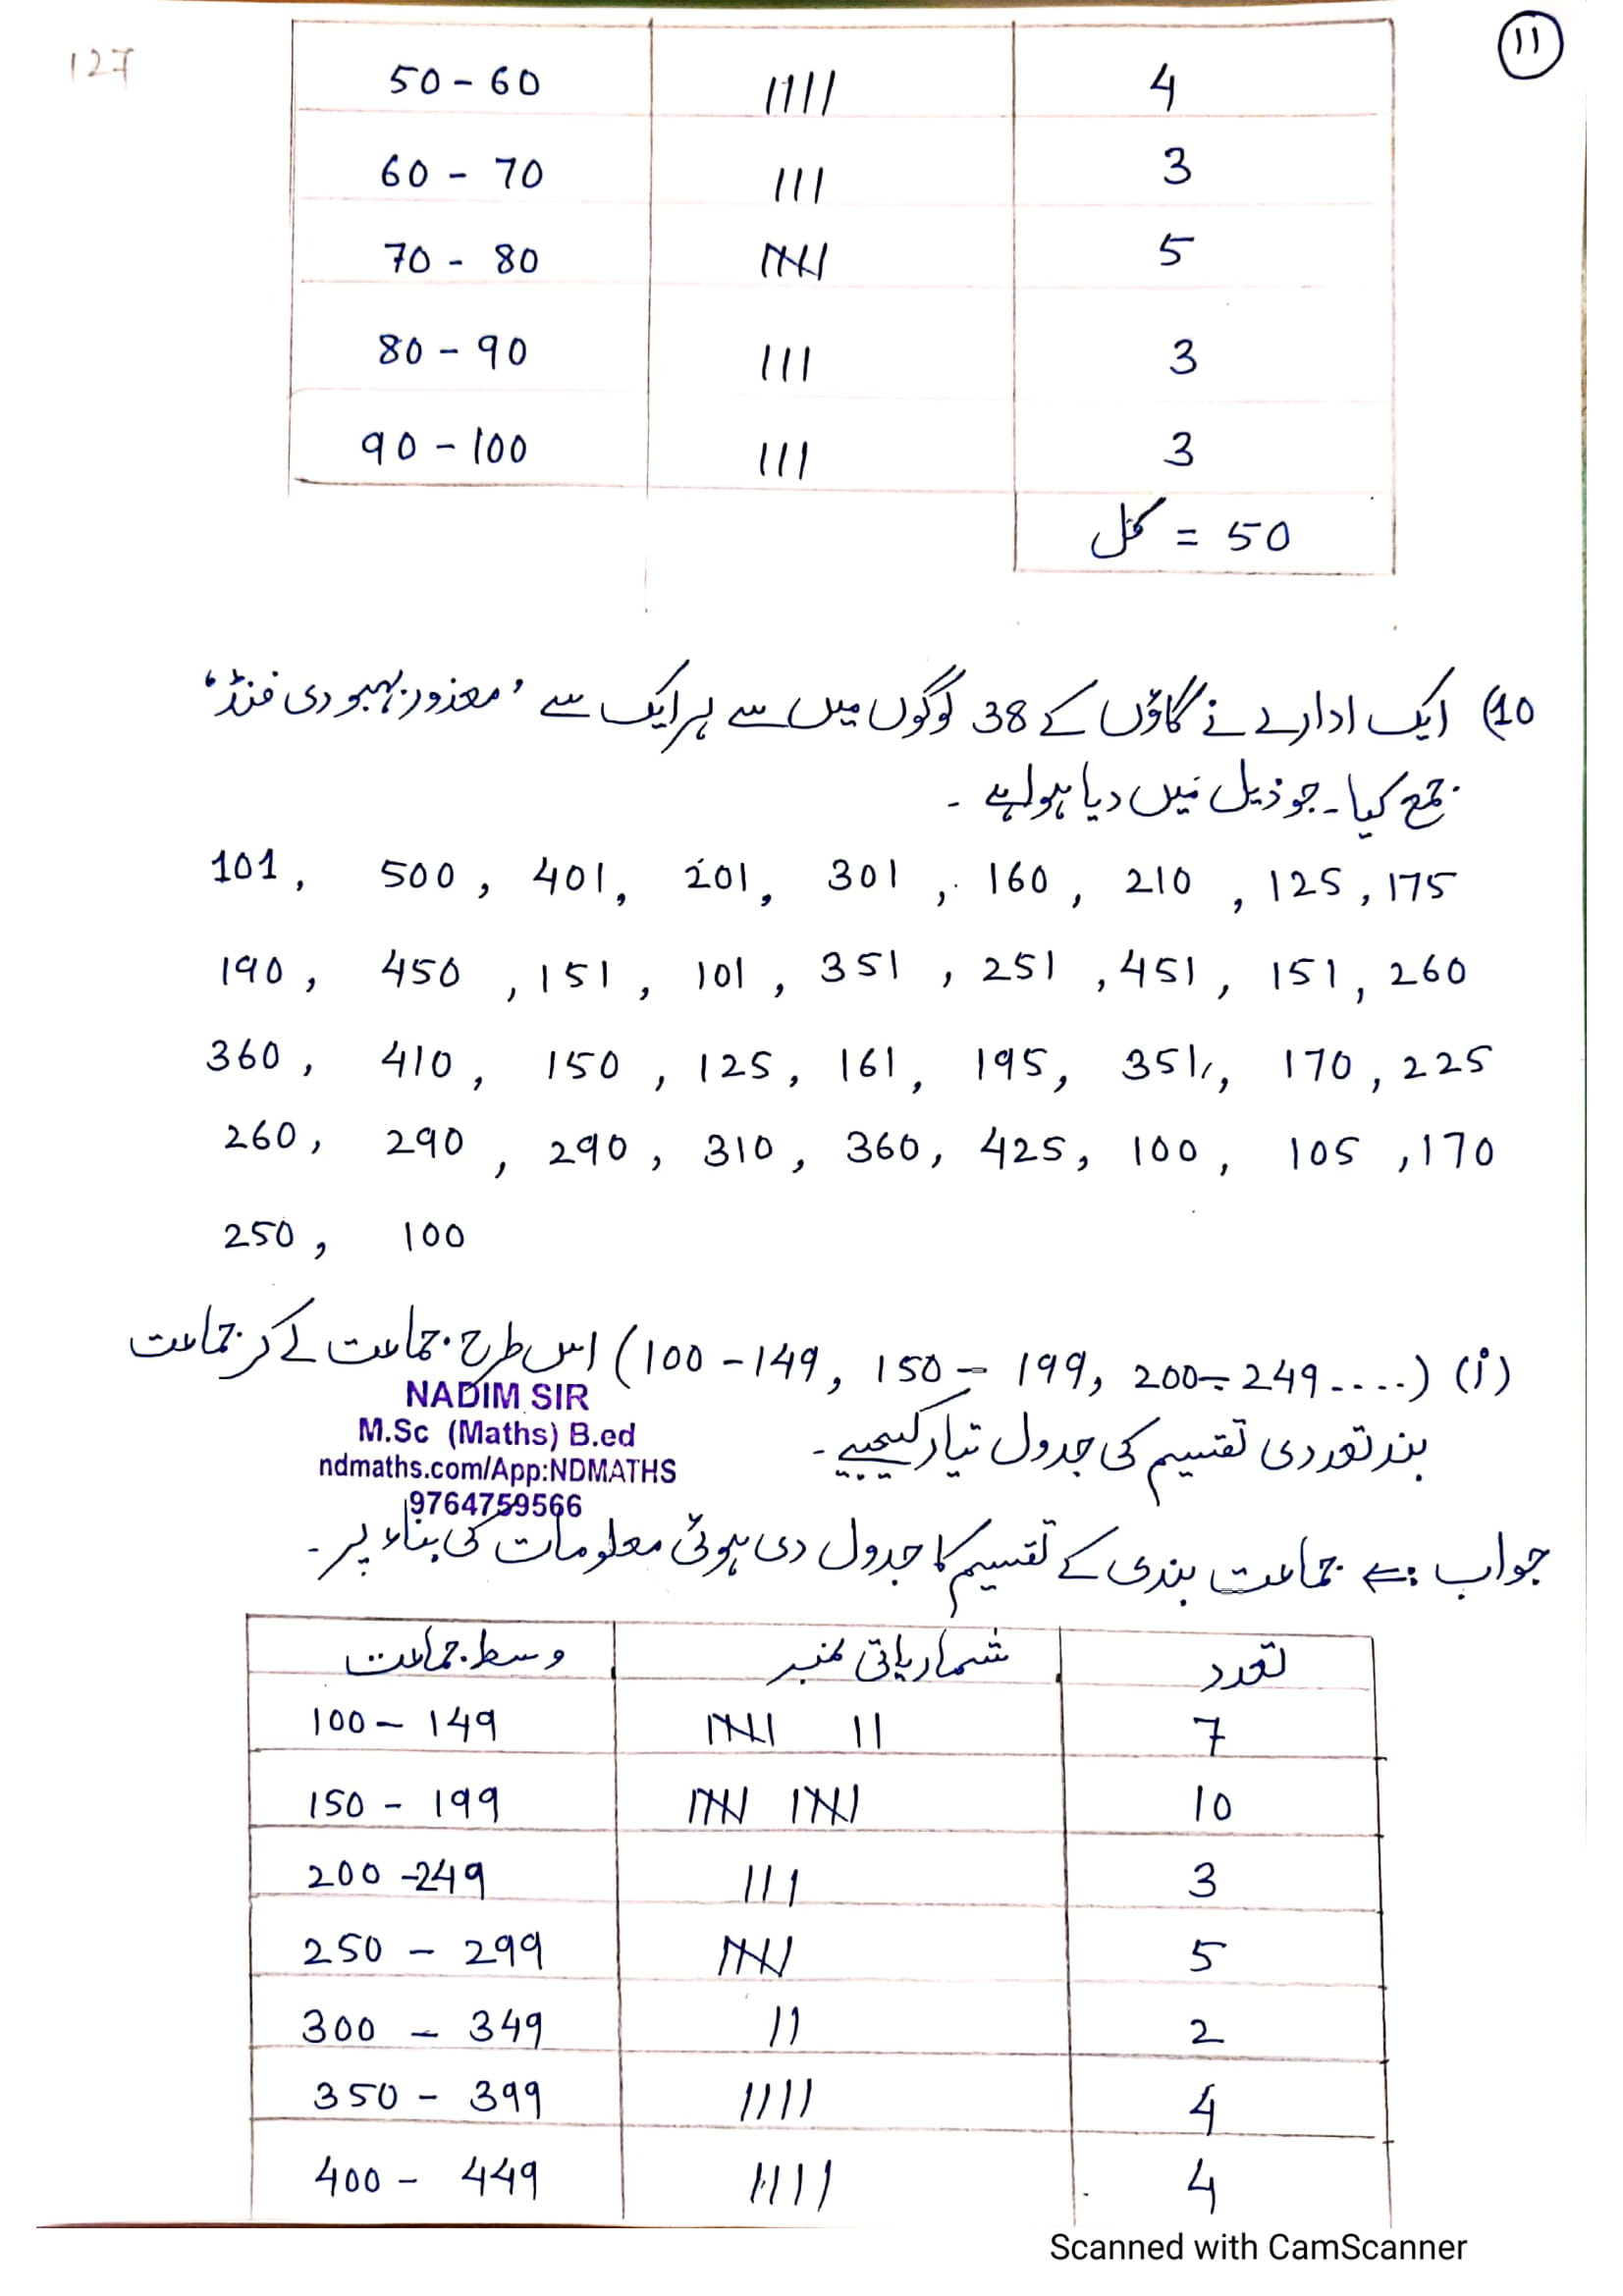 127
11
50 - 60 |||| 4
60 - 70 ||| 3
70 - 80 |||| 5
80 - 90 ||| 3
90 - 100 ||| 3
کل = 50
10) ایک ادارے نے گاؤں کے 38 لوگوں میں سے ہر ایک سے ’معذور بہبودی فنڈ‘
جمع کیا۔ جو ذیل میں دیا ہوا ہے ۔
101, 500, 401, 201, 301, 160, 210, 125, 175
190, 450, 151, 101, 351, 251, 451, 151, 260
360, 410, 150, 125, 161, 195, 351, 170, 225
260, 290, 290, 310, 360, 425, 100, 105, 170
250, 100
(i) (100 - 149, 150 - 199, 200 - 249 ....) اس طرح جماعت لے کر جماعت
بند تعددی تقسیم کی جدول تیار کیجیے ۔
NADIM SIR
M.Sc (Maths) B.ed
ndmaths.com/App:NDMATHS
9764759566
جواب :⇐ جماعت بندی کے تقسیم کا جدول دی ہوئی معلومات کی بناء پر ۔
وسط جماعت شماریاتی نمبر تعدد
100 - 149 |||| || 7
150 - 199 |||| |||| 10
200 - 249 ||| 3
250 - 299 |||| 5
300 - 349 || 2
350 - 399 |||| 4
400 - 449 |||| 4
Scanned with CamScanner